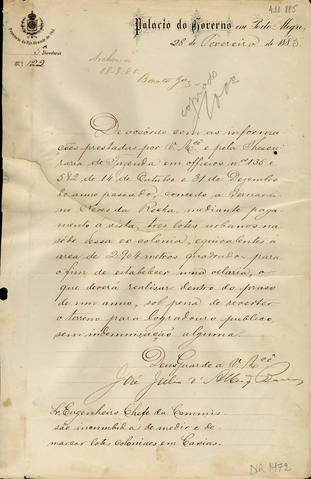 411 885
Palacio do Governo em Porto Alegre,
28 de Fevereiro de 1885
Provincia do Rio Grande do Sul
3ª Directoria
Nº 122
Archive-se
18-3-85
De accôrdo com as informa
ções prestadas por V. Mcê e pela Thesou
raria de Fazenda em officios nºs 135 e
582 de 14 de Outubro e 31 de Dezembro
do anno passado, concedo a Januario
Neves da Rocha, mediante paga
mento á vista, tres lotes urbanos na
séde dessa ex colonia, equivalentes a
area de 2904 metros quadrados para
o fim de estabelecer uma olaria, o
que deverá realizar dentro do praso
de um anno, sob pena de reverter
o terreno para logradouro publico
sem indemnização alguma.
Deus Guarde a V. Mcê
José Julio d'Albuqe Barros
Sr. Engenheiro Chefe da Commis
são incumbida de medir e de
marcar lotes coloniaes em Caxias.
DR 1472